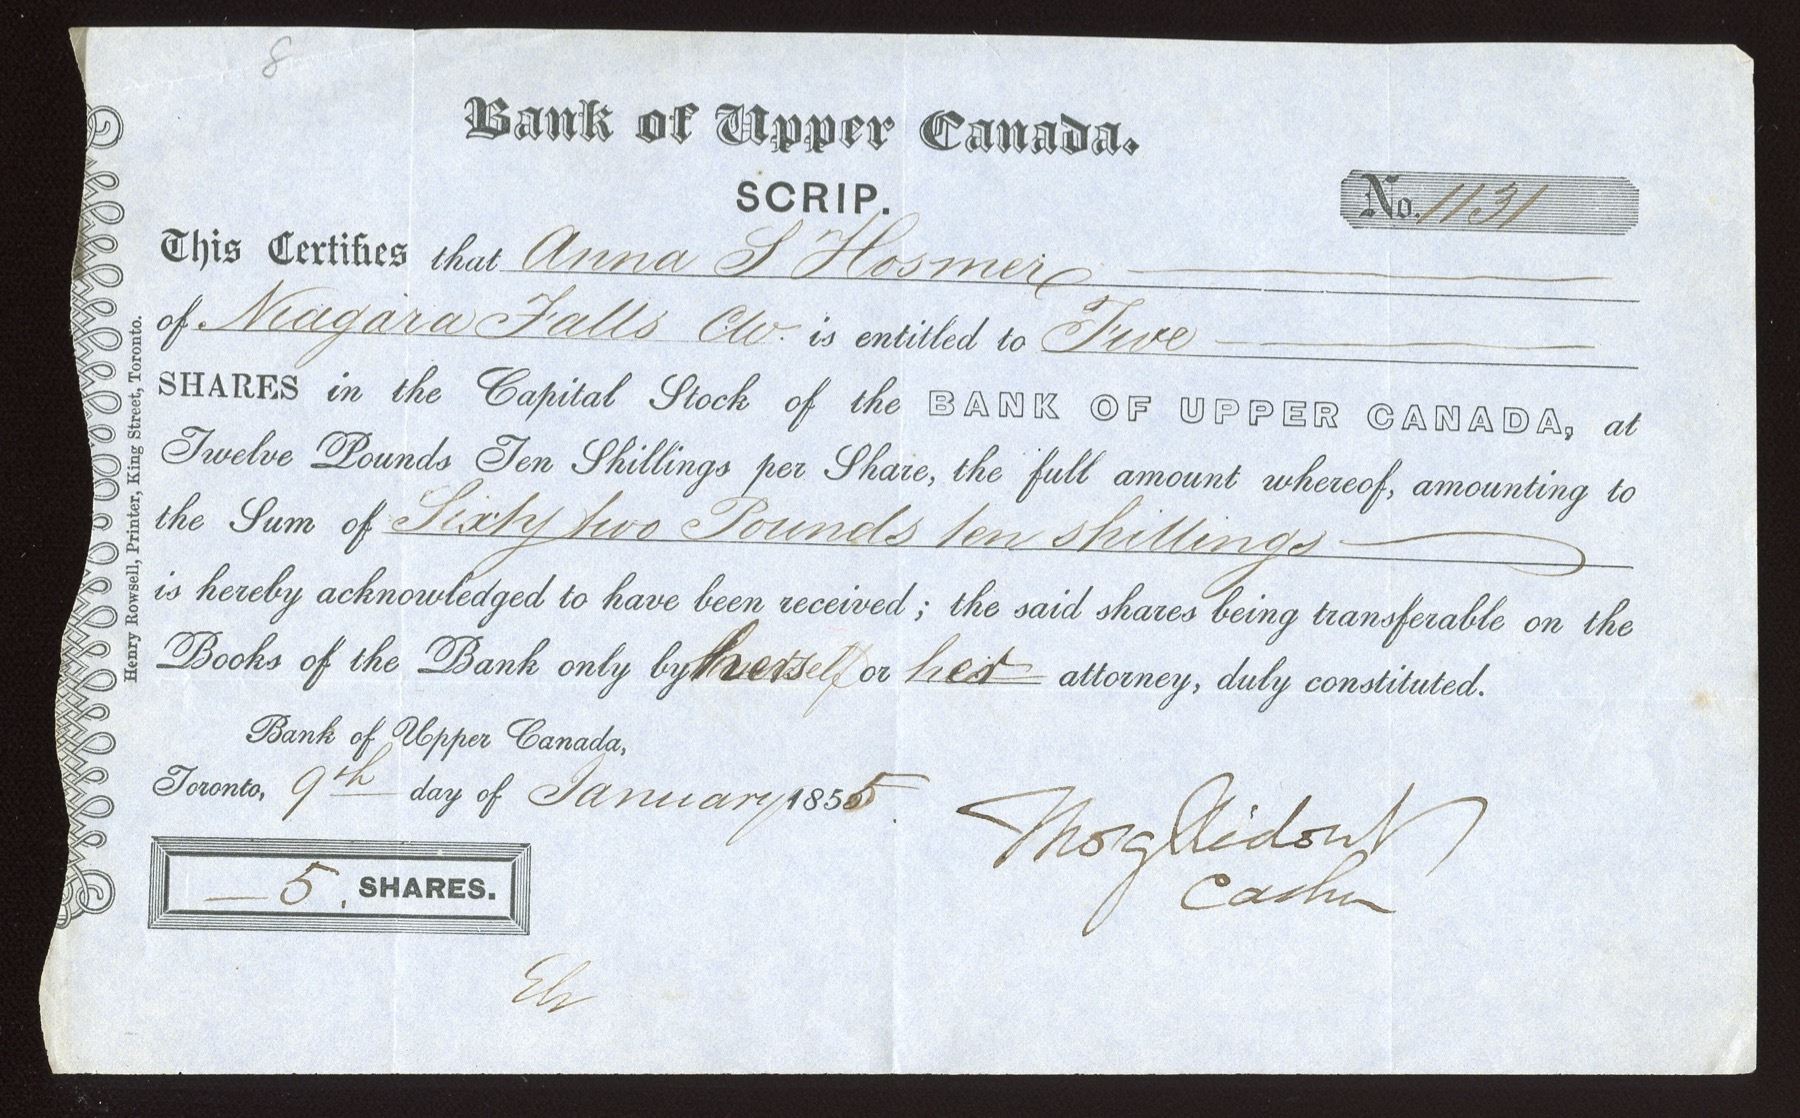 8
Bank of Upper Canada.
SCRIP.
No. 1131
This Certifies that Anna S Hosmer
of Niagara Falls CW. is entitled to Five
SHARES in the Capital Stock of the BANK OF UPPER CANADA, at
Twelve Pounds Ten Shillings per Share, the full amount whereof, amounting to
the Sum of Sixty two Pounds ten shillings
is hereby acknowledged to have been received; the said shares being transferable on the
Books of the Bank only by herself or her attorney, duly constituted.
Bank of Upper Canada,
Toronto, 9th day of January 1855.
Thos G Ridout
Cashier
5. SHARES.
Henry Rowsell, Printer, King Street, Toronto.